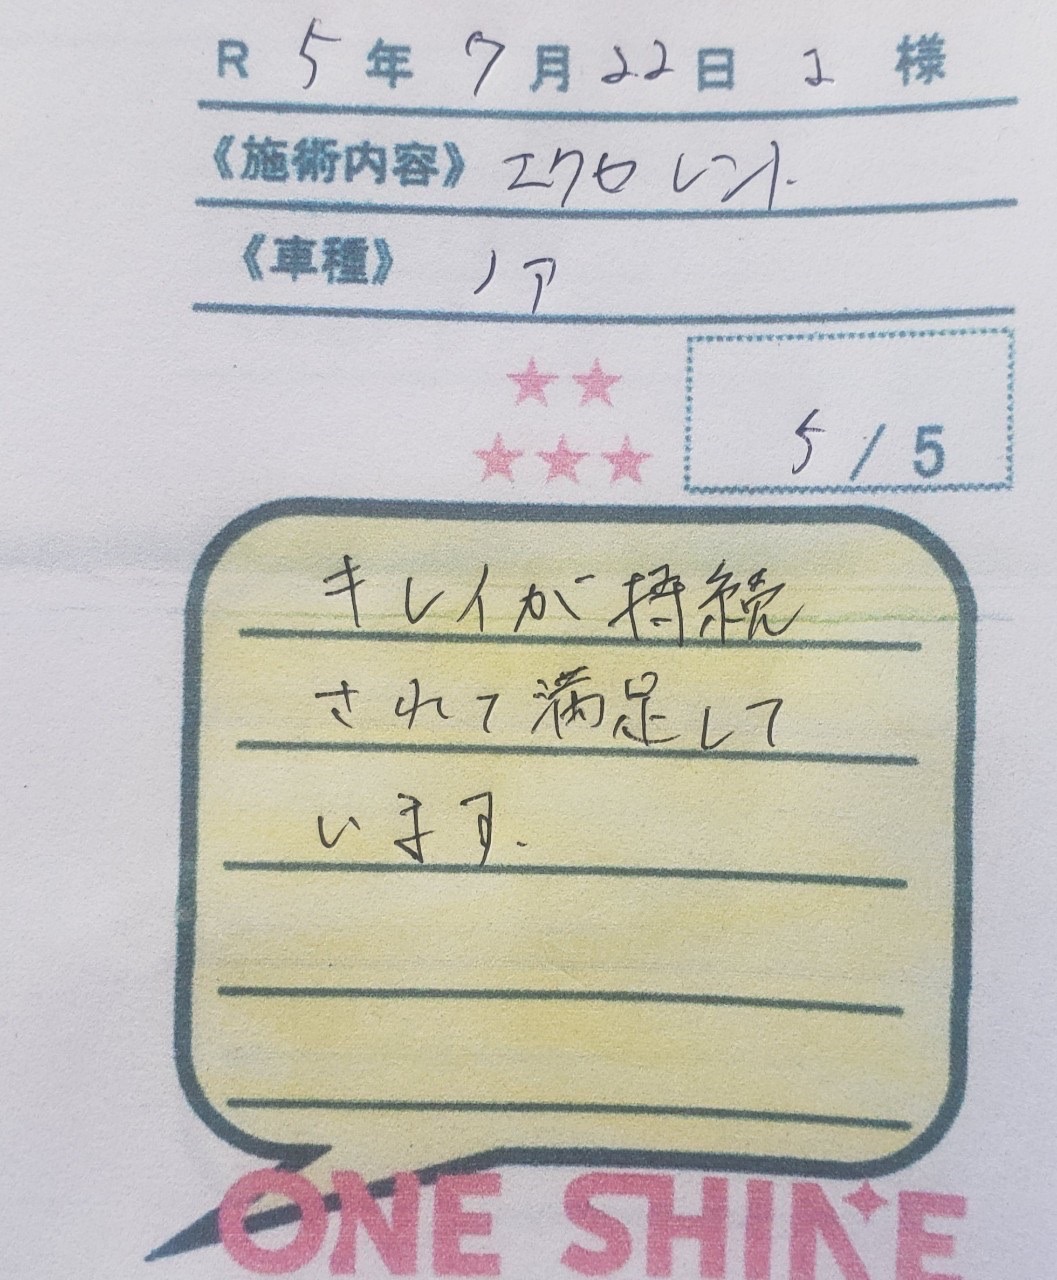 R 5年 7月 22日 I 様
《施術内容》 エクセレント
《車種》 ノア
5 / 5
キレイが持続
されて満足して
います.
ONE SHINE